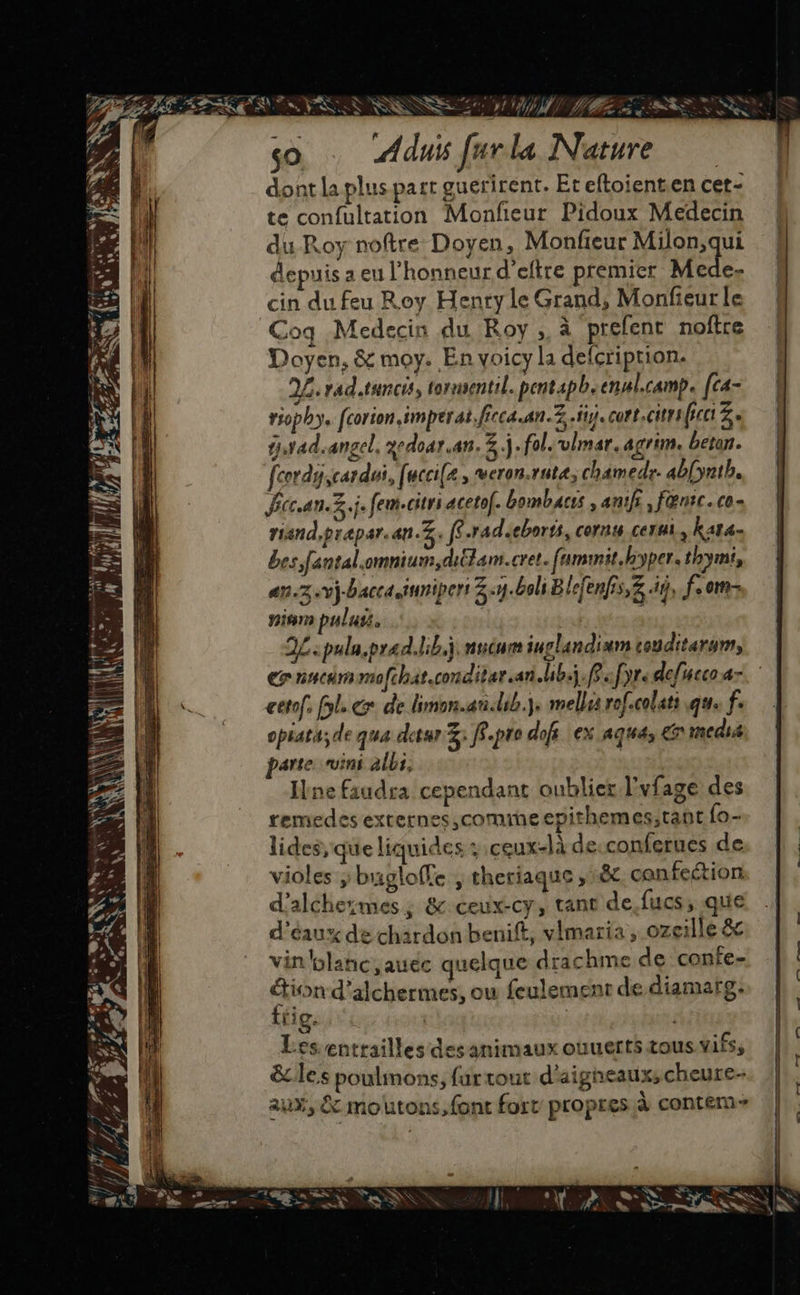 50 Aduis ſur la Nature
dont la plus part guerirent. Et eſtoient en cet-
te conſultation Monſieur Pidoux Medecin
du Roy noſtre Doyen, Monſieur Milon, qui
depuis a eu l'honneur d'eſtre premier Mede-
cin du feu Roy Henry le Grand, Monſieur le
Coq Medecin du Roy, à preſent noſtre
Doyen, & moy. En voicy la deſcription.
℞. rad. tuncis, tormentil. pentaph. enul. camp. ſca-
riophy. ſcorion. imperat. ſicca. an. ℥. iiij. cort. citri ſicci ℥.
ij. rad. angel. zedoar. an. ℥.j. fol. vlmar. agrim. beton.
ſcordij, cardui, ſucciſæ, veron. rutæ, chamedr. abſynth.
ſicc. an. ℥.j. ſem. citri acetoſ. bombacis, aniſi, fœnic. co-
riand. præpar. an. ℥. ſſ. rad. eboris, cornu cerui, kara-
bes, ſantal. omnium, dictam. cret. ſummit. hyper. thymi,
an. ʒ. vj. bacca. iuniperi ℥. ij. boli Bleſenſis, ℥ iij, f. om-
nium puluis.
℞. pulu. præd. lib. j. nucum iuglandium conditarum,
& nucum moſchat. conditar. an. lib. j. ſſ. ſyr. de ſucco a-
cetoſ. ſyl. & de limon. an. lib. j. mellis roſ. colati qu. ſ.
opiata; de qua detur ℥. ſſ. pro doſi ex aqua, & media
parte vini albi.
Il ne faudra cependant oublier l'vſage des
remedes externes, comme epithemes, tant ſo-
lides, que liquides; ceux-là de conſerues de
violes, bugloſſe, theriaque, & confection
d'alchermes, & ceux-cy, tant de ſucs, que
d'eaux de chardon beniſt, vlmaria, ozeille &
vin blanc, auec quelque drachme de confe-
ction d'alchermes, ou ſeulement de diamarg.
frig.
Les entrailles des animaux ouuerts tous vifs,
& les poulmons, ſur tout d'aigneaux, cheure-
aux, & moutons, ſont fort propres à contem-